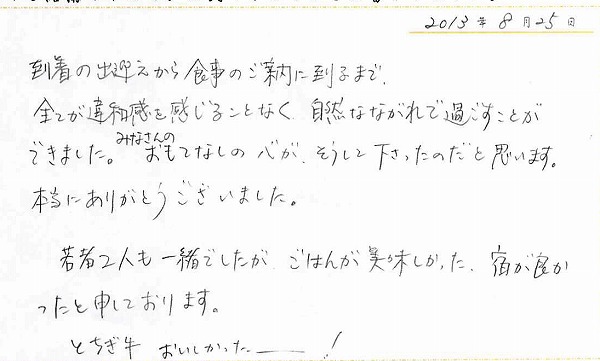 2013年8月25日
到着の出迎えから食事のご案内に到るまで、
全てが違和感を感じることなく、自然なながれで過ごすことが
できました。みなさんのおもてなしの心が、そうして下さったのだと思います。
本当にありがとうございました。
若者2人も一緒でしたが、ごはんが美味しかった、宿が良か
ったと申しております。
とちぎ牛 おいしかった――!